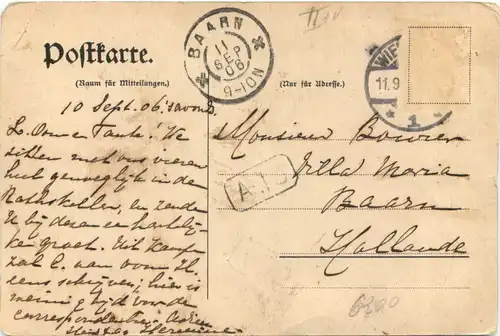 Postkarte.
(Raum für Mitteilungen.)
(Nur für Adresse.)
BAARN
11
SEP
06
9-10N
WIE
11.9
1
10 Sept. 06. 's avonds
L. Oom en Tante! We
zitten met ons vieren
heel genoeglijk in den
Rathskeller, en zenden
U bij dezen een hartelij-
ken groet. Uit
zal C. aan oom H.
eens schrijven; hier is
weinig tijd voor de
correspondentie. Adieu
Hermine
Monsieur Bouvier
Villa Maria
Baarn
Hollande
A.I.